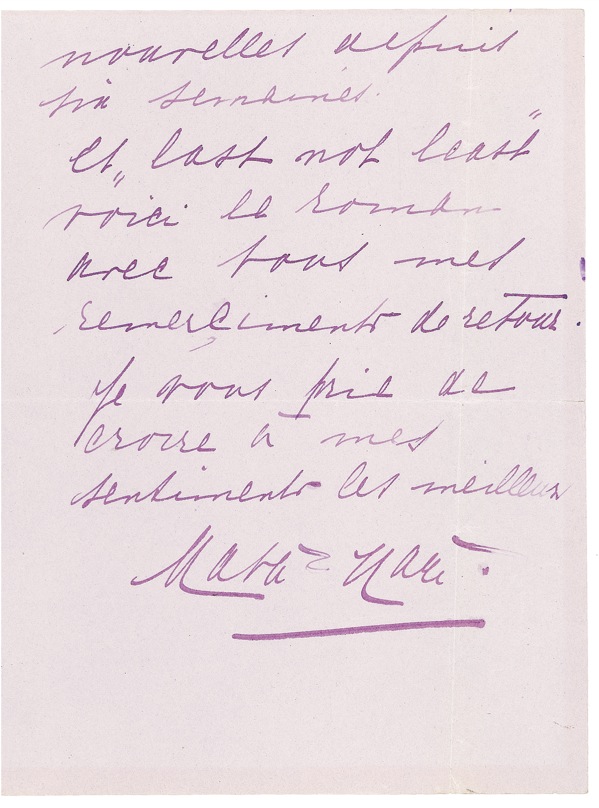 nouvelles depuis
six semaines.
et „last not least"
voici le roman
avec tous mes
remerçiments de retour.
Je vous prie de
croire à mes
sentiments les meilleurs
Mata = Hari.